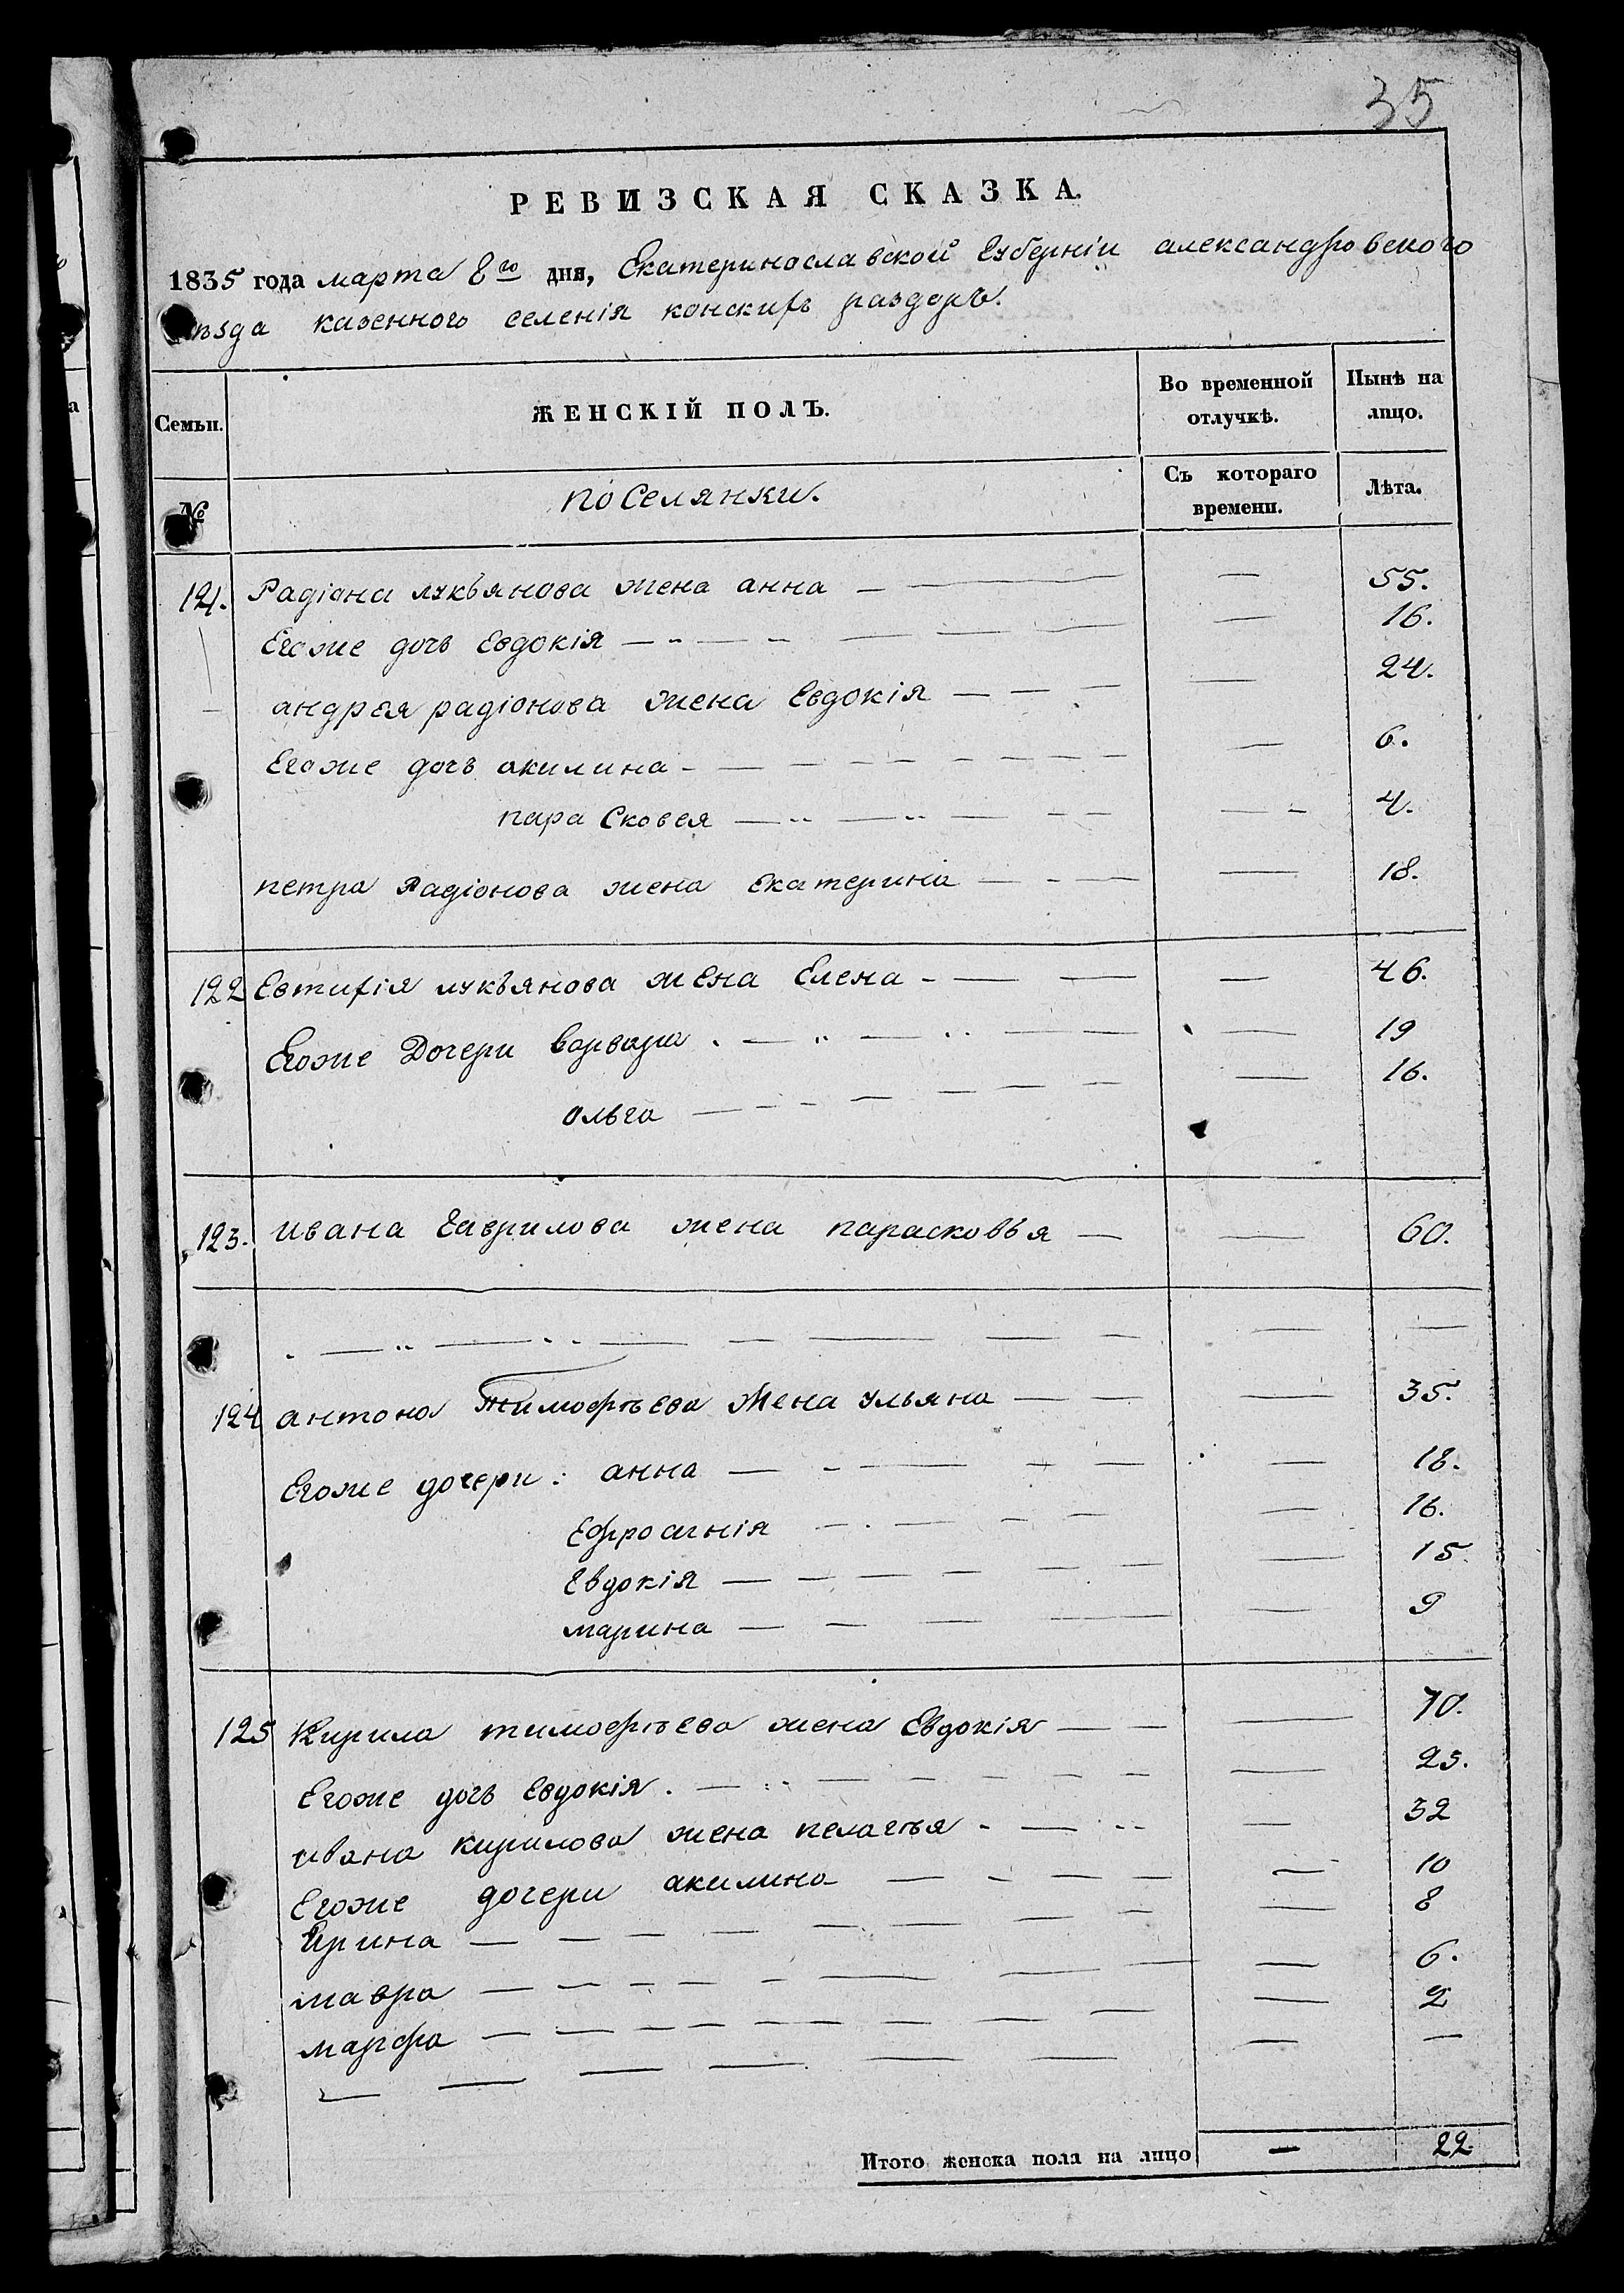 35
РЕВИЗСКАЯ СКАЗКА.
1835 года марта 8го дня, Екатеринославской Губерніи александровского
уѣзда казенного селенія конскихъ раздоръ.
Семьи.
ЖЕНСКІЙ ПОЛЪ.
Во временной отлучкѣ.
Нынѣ на лицо.
№
поселянки.
Съ котораго времени.
Лѣта.
121. Радіона лукъянова жена анна — — 55.
Егоже дочь Евдокія — — 16.
андрея радіонова жена Евдокія — — 24.
Егоже дочь акилина — — 6.
параСковея — — 4.
петра Радіонова жена Екатерина — — 18.
122 Евтихія лукъянова жена Елена — — 46.
Егоже Дочери варвара — — 19
Ольга — — 16.
123. ивана Гаврилова жена парасковья — — 60.
— — —
124 антона Тимофѣева Жена ульяна — — 35.
Егоже дочери: анна — — 18.
Ефросинія — — 16.
Евдокія — — 15.
марина — — 9
125 Кирила тимофѣева жена Евдокія — — 70.
Егоже дочь Евдокія. — — 25.
ивана кирилова жена пелагѣя — — 32
Егоже дочери акилина — — 10
Ирина — — 8
мавра — — 6.
марфа — — 2
— — —
Итого женска пола на лицо — 22.